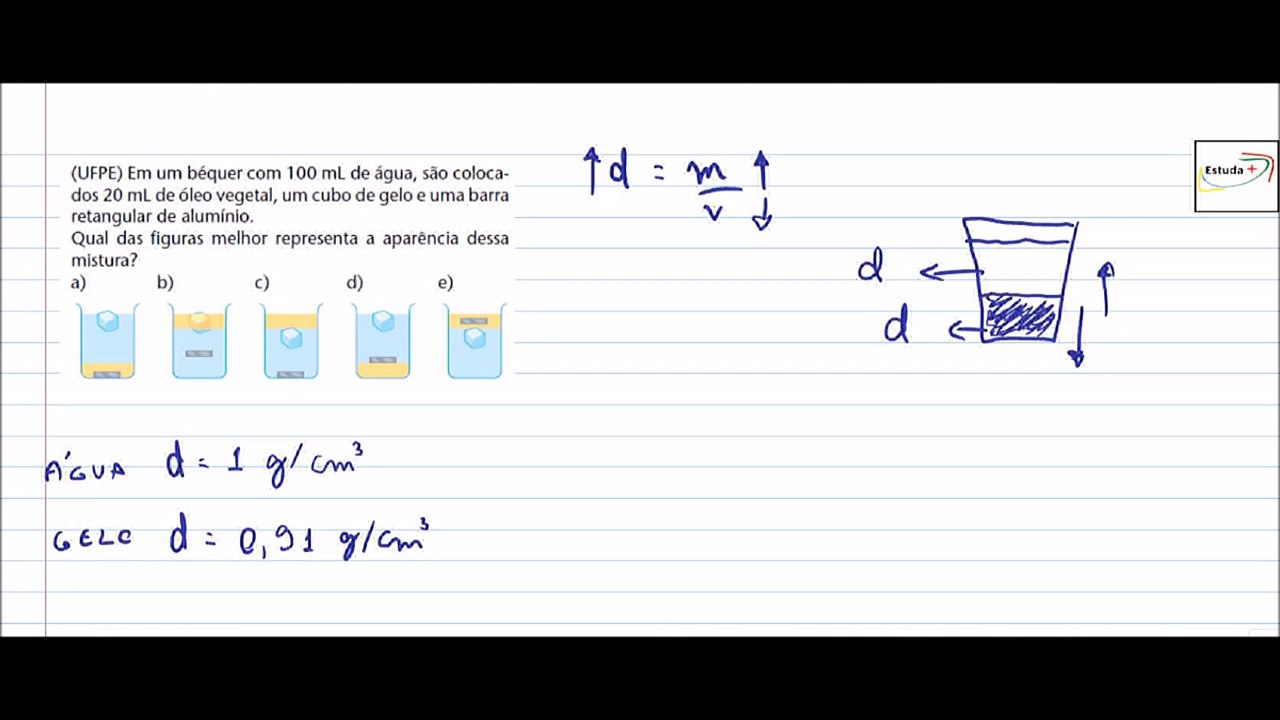 (UFPE) Em um béquer com 100 mL de água, são coloca-
dos 20 mL de óleo vegetal, um cubo de gelo e uma barra
retangular de alumínio.
Qual das figuras melhor representa a aparência dessa
mistura?
a) b) c) d) e)
d = m
v
Estuda +
d
d
ÁGUA d = 1 g/cm³
GELO d = 0,91 g/cm³